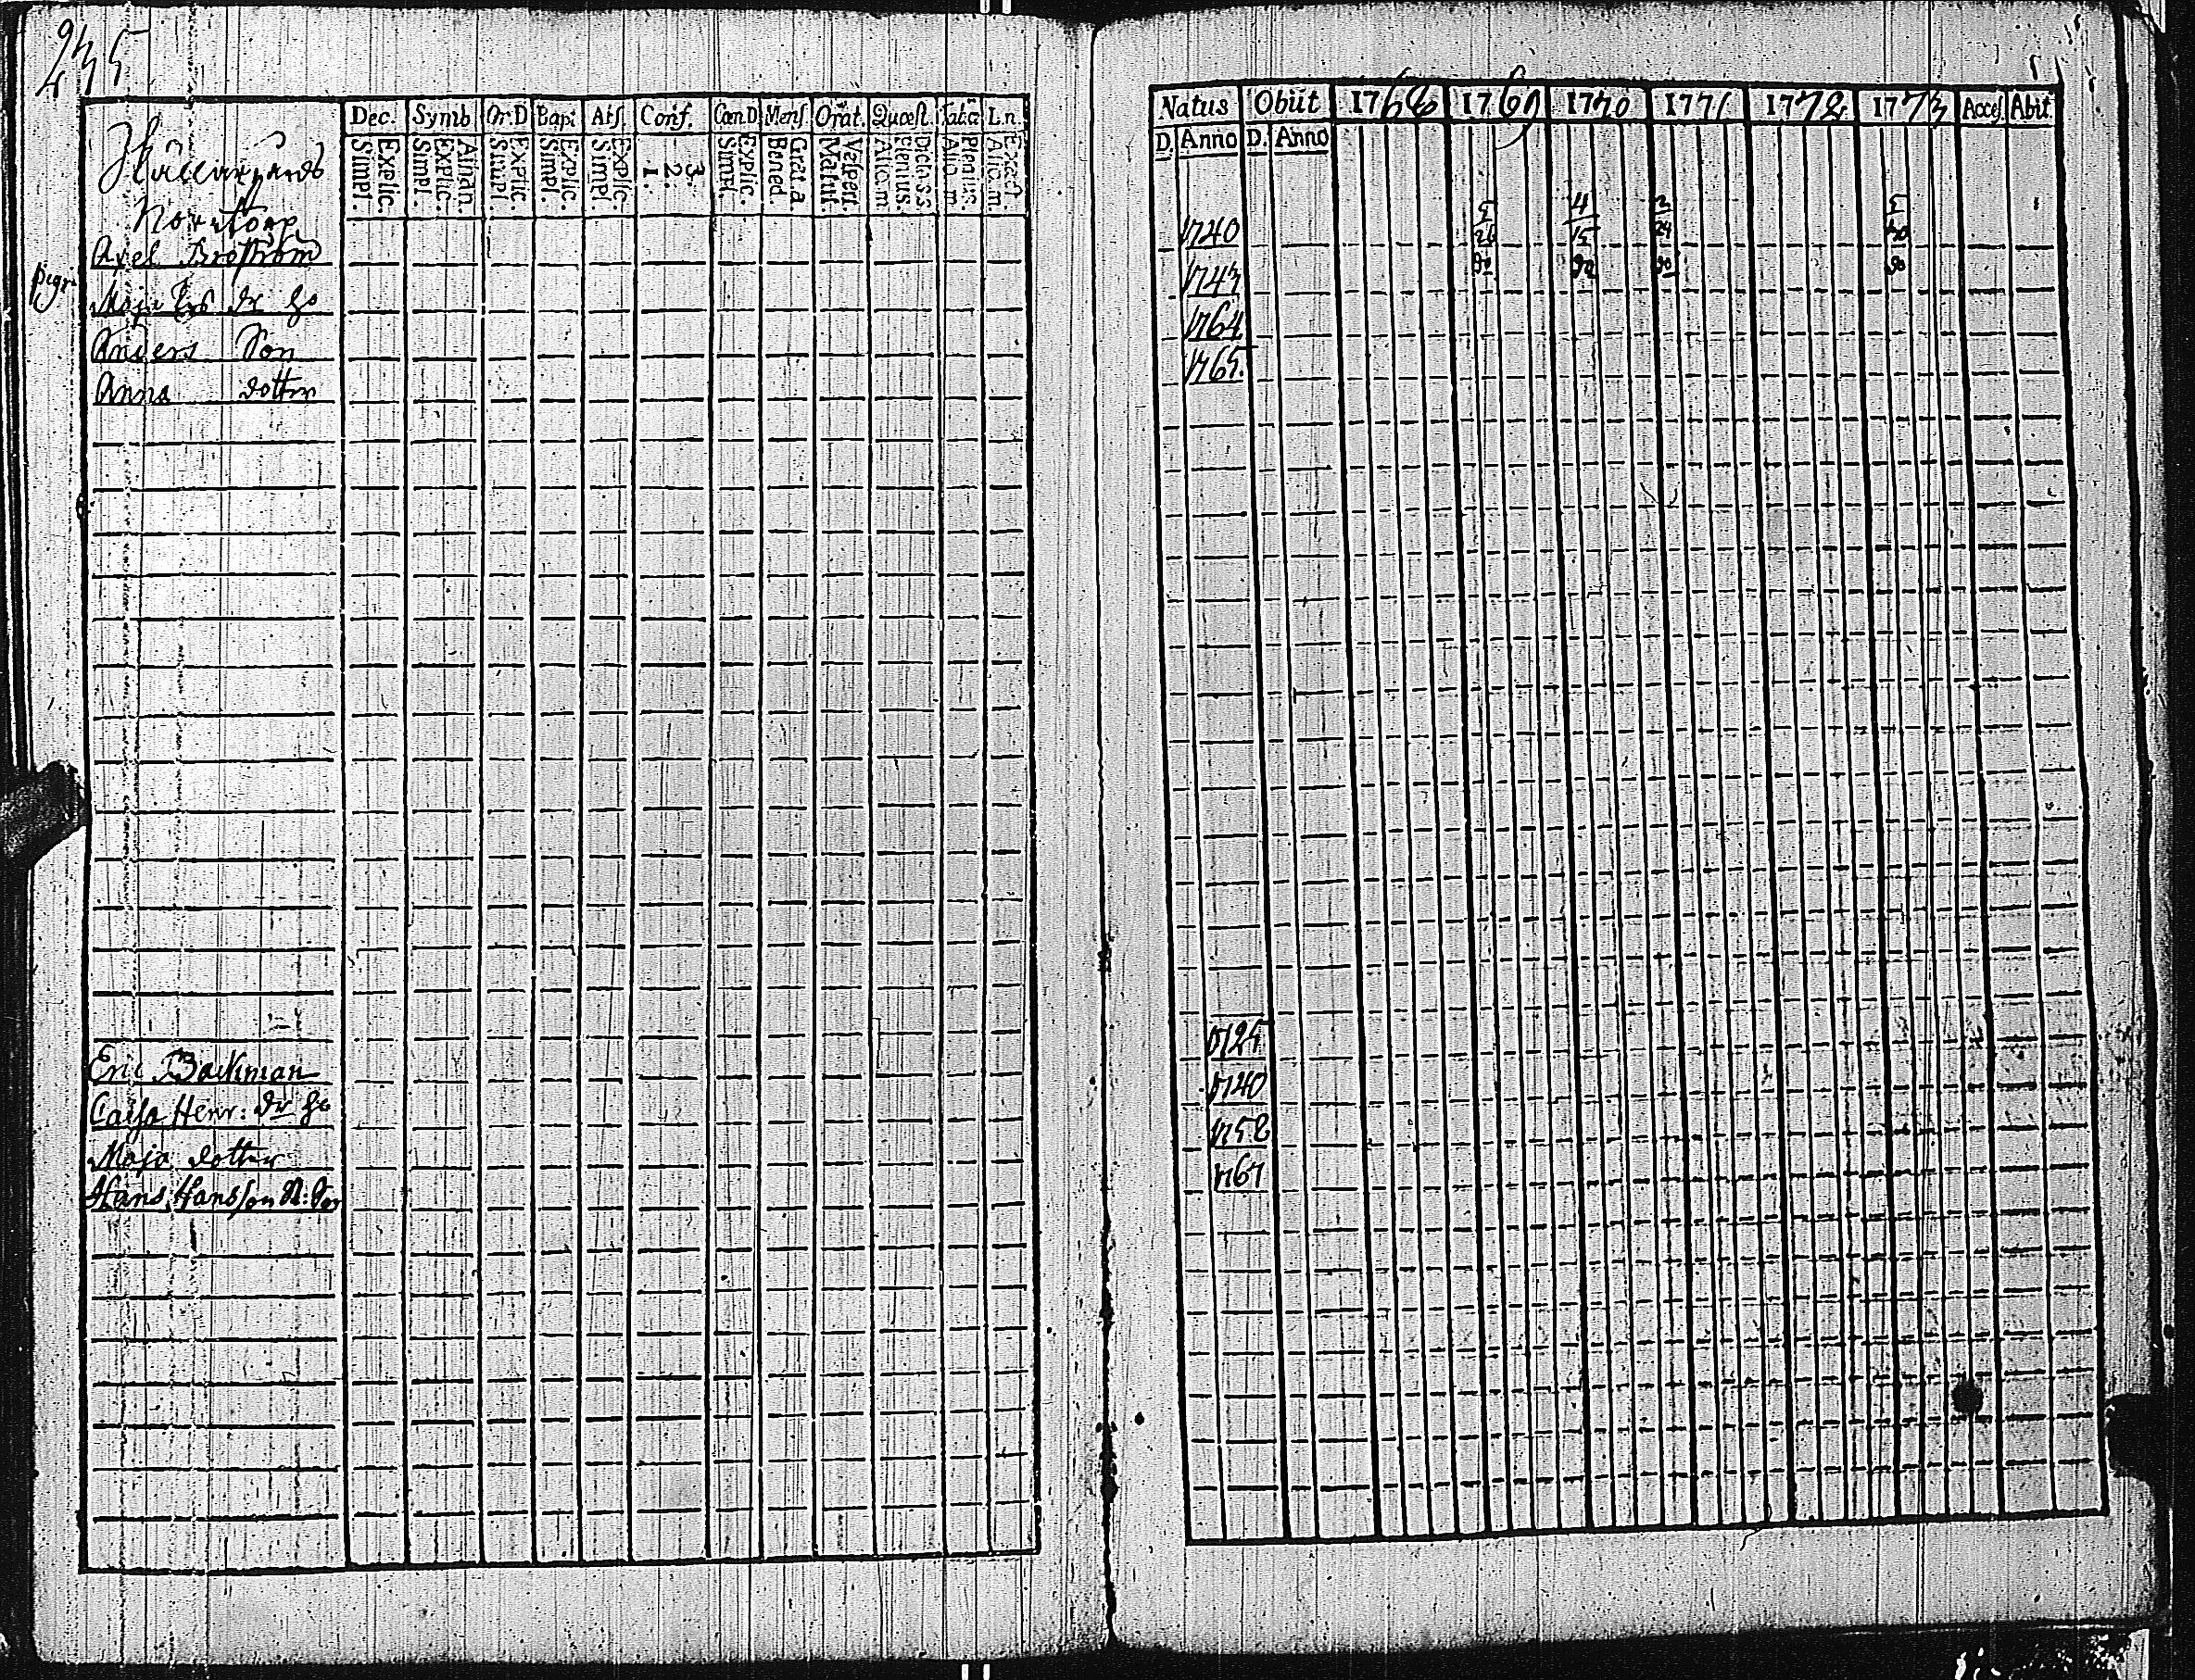 235
Dec. Symb. Or.D Bapt. Abs. Conf. Cœn.D Mens. Orat. Quæst. Tab.œ L.n.
Explic. Simpl. Athan. Explic. Simpl. Explic. Simpl. Explic. Simpl. Explic. Simpl. 3. 2. 1. Explic. Simpl. Grat.a. Bened. Vespert. Matut. Plenius. Aliq.m. Plenius. Aliq.m. Exact. Aliq.m.
Norrstorp
Axel Broström
pigr. Maja dr hu
Anders Son
Anna dotter
Eric Backman
Caisa Henr: dr hu
Maja dotter
Hans Hansson N: Son
Natus Obiit 1768 1769 1770 1771 1772 1773 Acces. Abit.
D. Anno D. Anno
1740 5 26 4 15 3 24
1743
1764
1765.
1725
1740
1752
1767